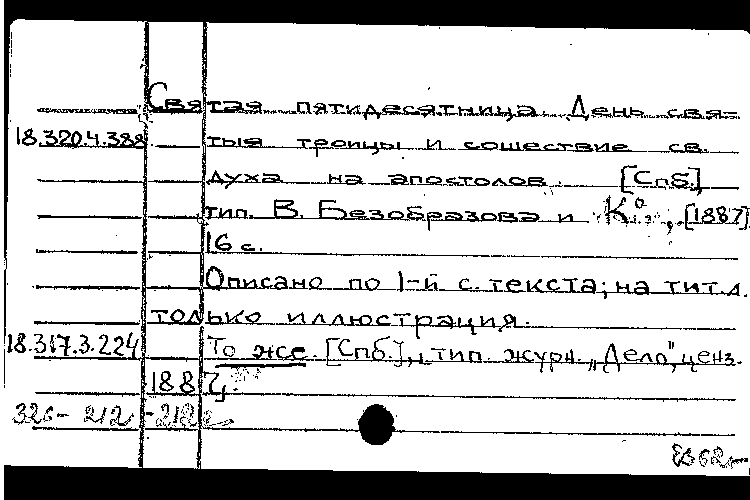 Святая пятидесятница. День свя-
18.320.4.388 тыя троицы и сошествие св.
духа на апостолов. [Спб.],
тип. В. Безобразова и К⁰, [1887]
16 с.
Описано по 1-й с. текста; на тит.л.
только иллюстрация.
18.317.3.224 То же. [Спб.], тип. журн. „Дело", ценз.
1887.
326- 212 -212